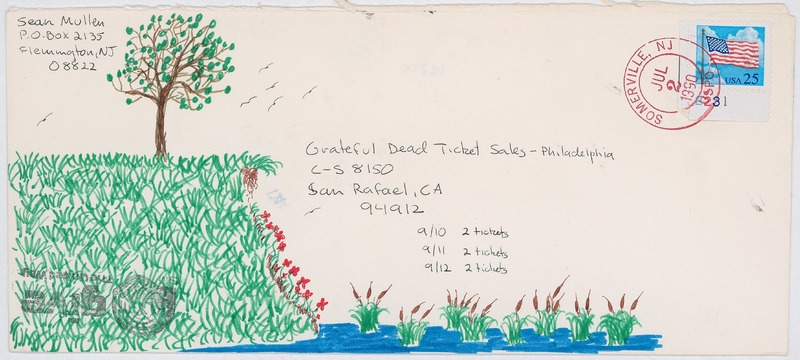 Sean Mullen
P.O. Box 2135
Flemmington, NJ
08822
SOMERVILLE, NJ
JUL
2
1990
USPO
USA 25
2231
Grateful Dead Ticket Sales - Philadelphia
C-S 8150
San Rafael, CA
94912
9/10 2 tickets
9/11 2 tickets
9/12 2 tickets